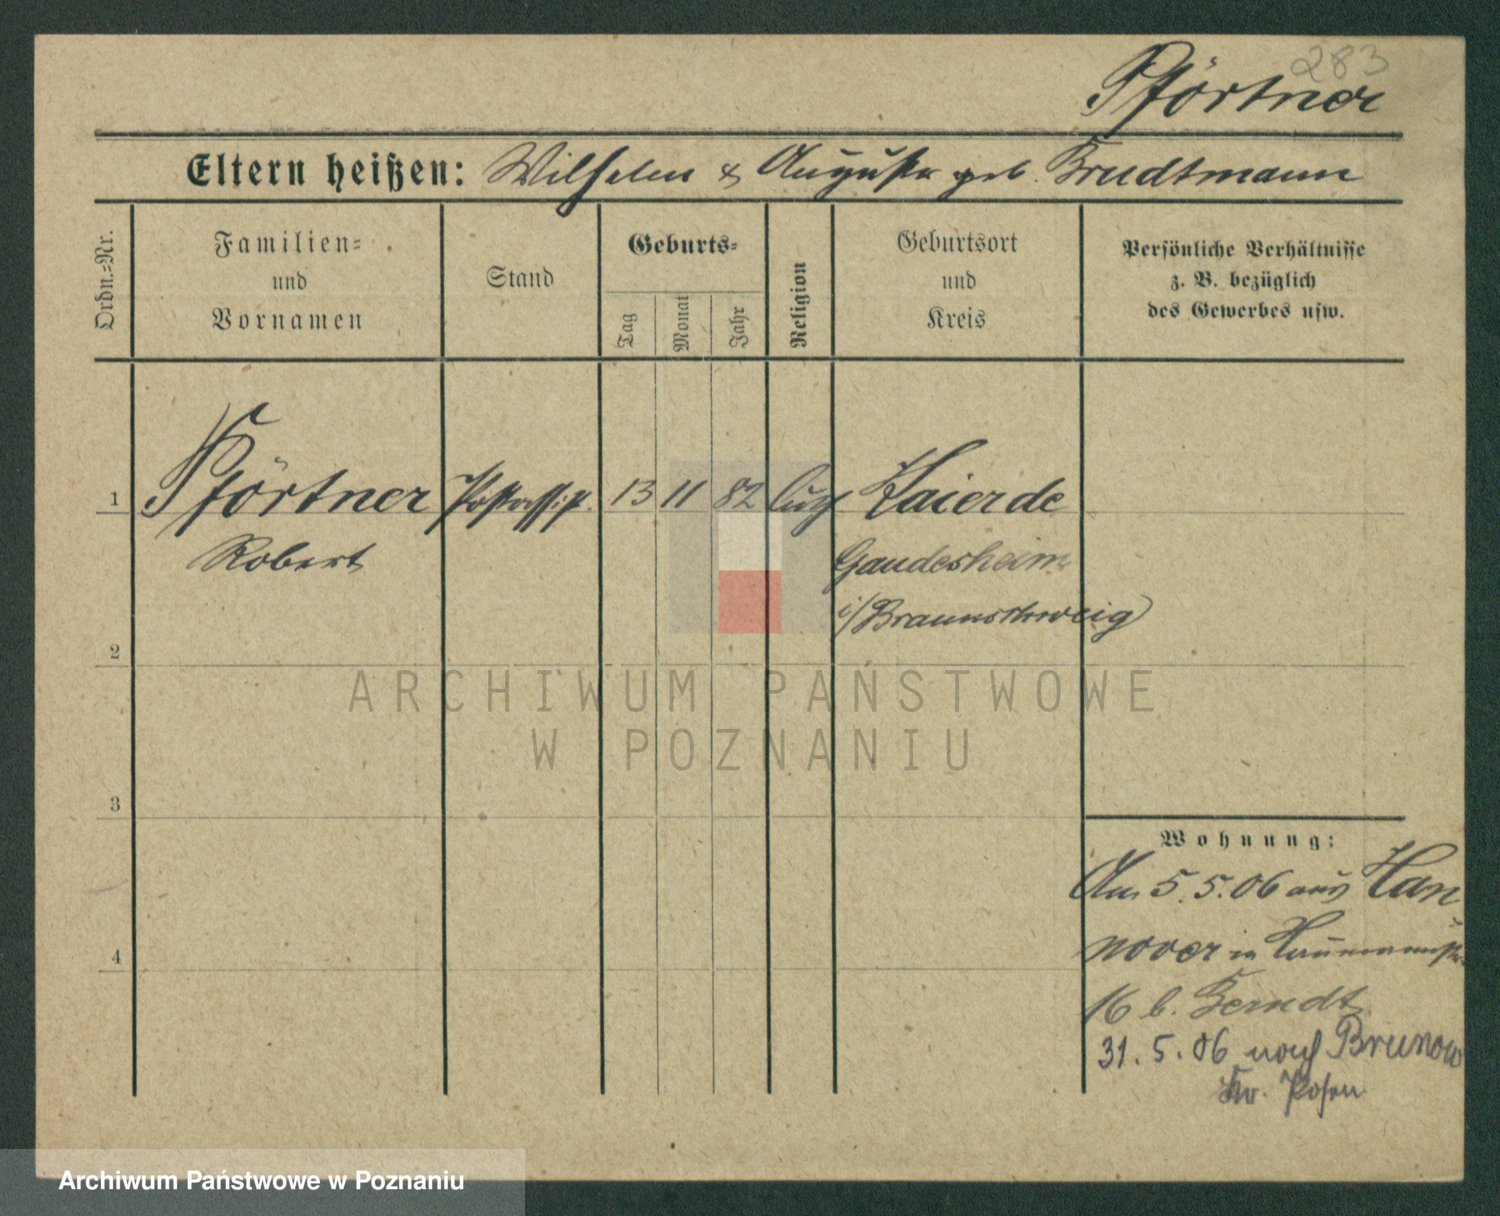 283
Pförtner
Eltern heißen: Wilhelm & Auguste geb. Brudtmann
Ordn.=Nr.
Familien=
und
Vornamen
Stand
Geburts=
Tag
Monat
Jahr
Religion
Geburtsort
und
Kreis
Persönliche Verhältnisse
z. B. bezüglich
des Gewerbes usw.
1 Pförtner Postassist. 13 11 82 luth Kaierde
Robert Gandesheim
i/Braunschweig)
2
ARCHIWUM PAŃSTWOWE
W POZNANIU
3
Wohnung:
Am 5.5.06 aus Han
nover in
4
16 b. Berndt
31.5.06 nach Brunow
Kr. Posen
Archiwum Państwowe w Poznaniu